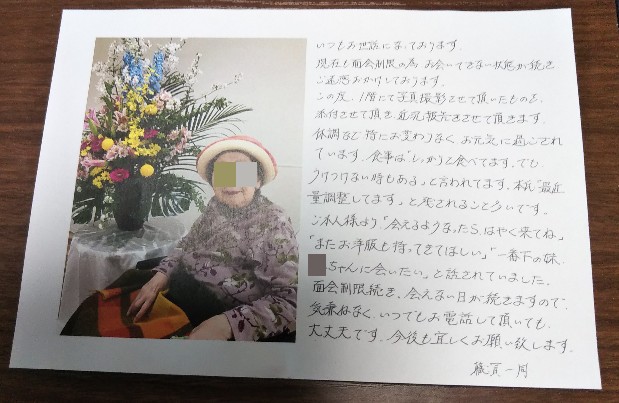 いつもお世話になっております。
現在も面会制限の為、お会いできない状態が続き
ご迷惑おかけしております。
この度、1階にて写真撮影させて頂いたものを、
添付させて頂き、近況報告とさせて頂きます。
体調など特にお変わりなく、お元気に過ごされ
ています。食事は「しっかりと食べてます。でも、
うけつけない時もある。」と言われてます。本氏「最近
量調整してます」と死されること多いです。
ご本人様より「会えるようなったら、はやく来てね」
「またお洋服も持ってきてほしい」「一番下の妹、
ちゃんに会いたい」と話されていました。
面会制限続き、会えない日が続きますので、
気兼ねなく、いつでもお電話して頂いても、
大丈夫です。今後も宜しくお願い致します。
職員一同